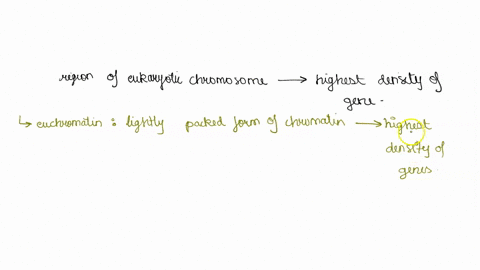 region of eukaryotic chromosome → highest density of
gene.
↳ euchromatin : lightly packed form of chromatin → highest
density of
genes.